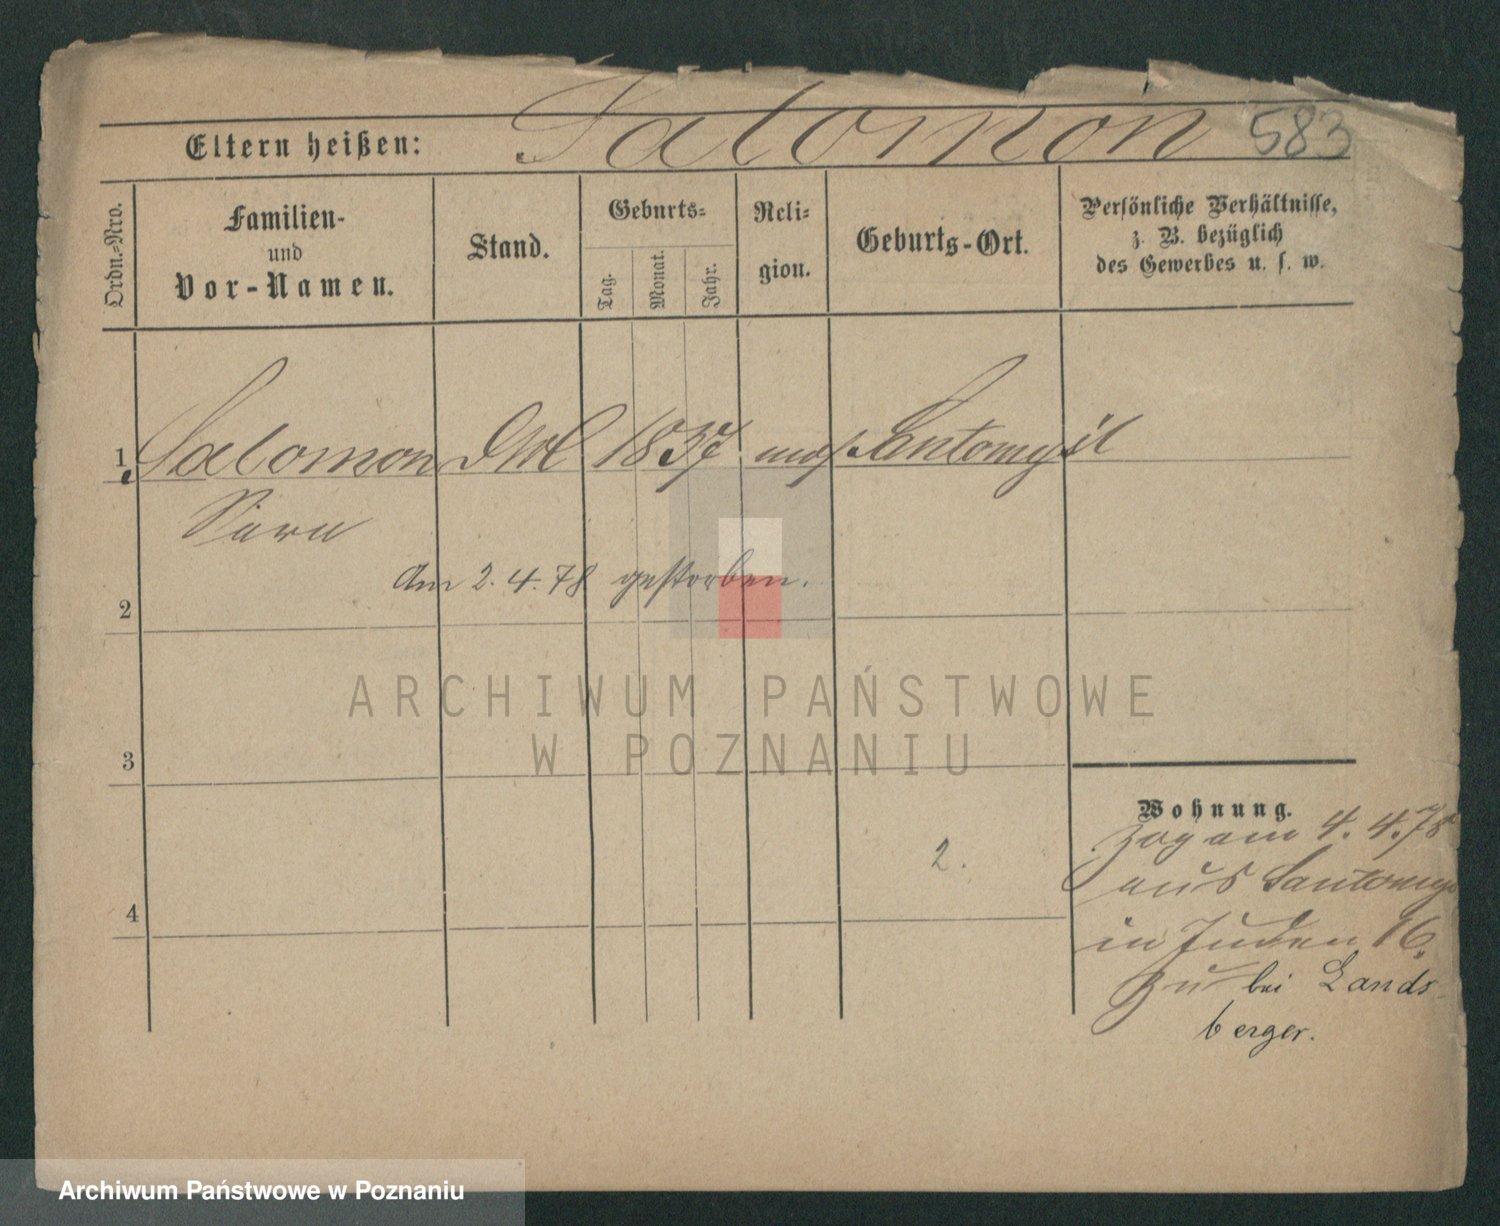 Salomon 583
Eltern heißen:
Ordn.-Nro.
Familien-
und
Vor-Namen.
Stand.
Geburts-
Tag.
Monat.
Jahr.
Reli-
gion.
Geburts-Ort.
Persönliche Verhältnisse,
z. B. bezüglich
des Gewerbes u. s. w.
1 Salomon 1837 mos. Santomysl
Am 2. 4. 78 gestorben.
2
3
ARCHIWUM PAŃSTWOWE
W POZNANIU
Wohnung.
zog am 4. 4. 78
aus Santomys
2.
4
in Juden 16.
zu bei Lands-
berger.
Archiwum Państwowe w Poznaniu